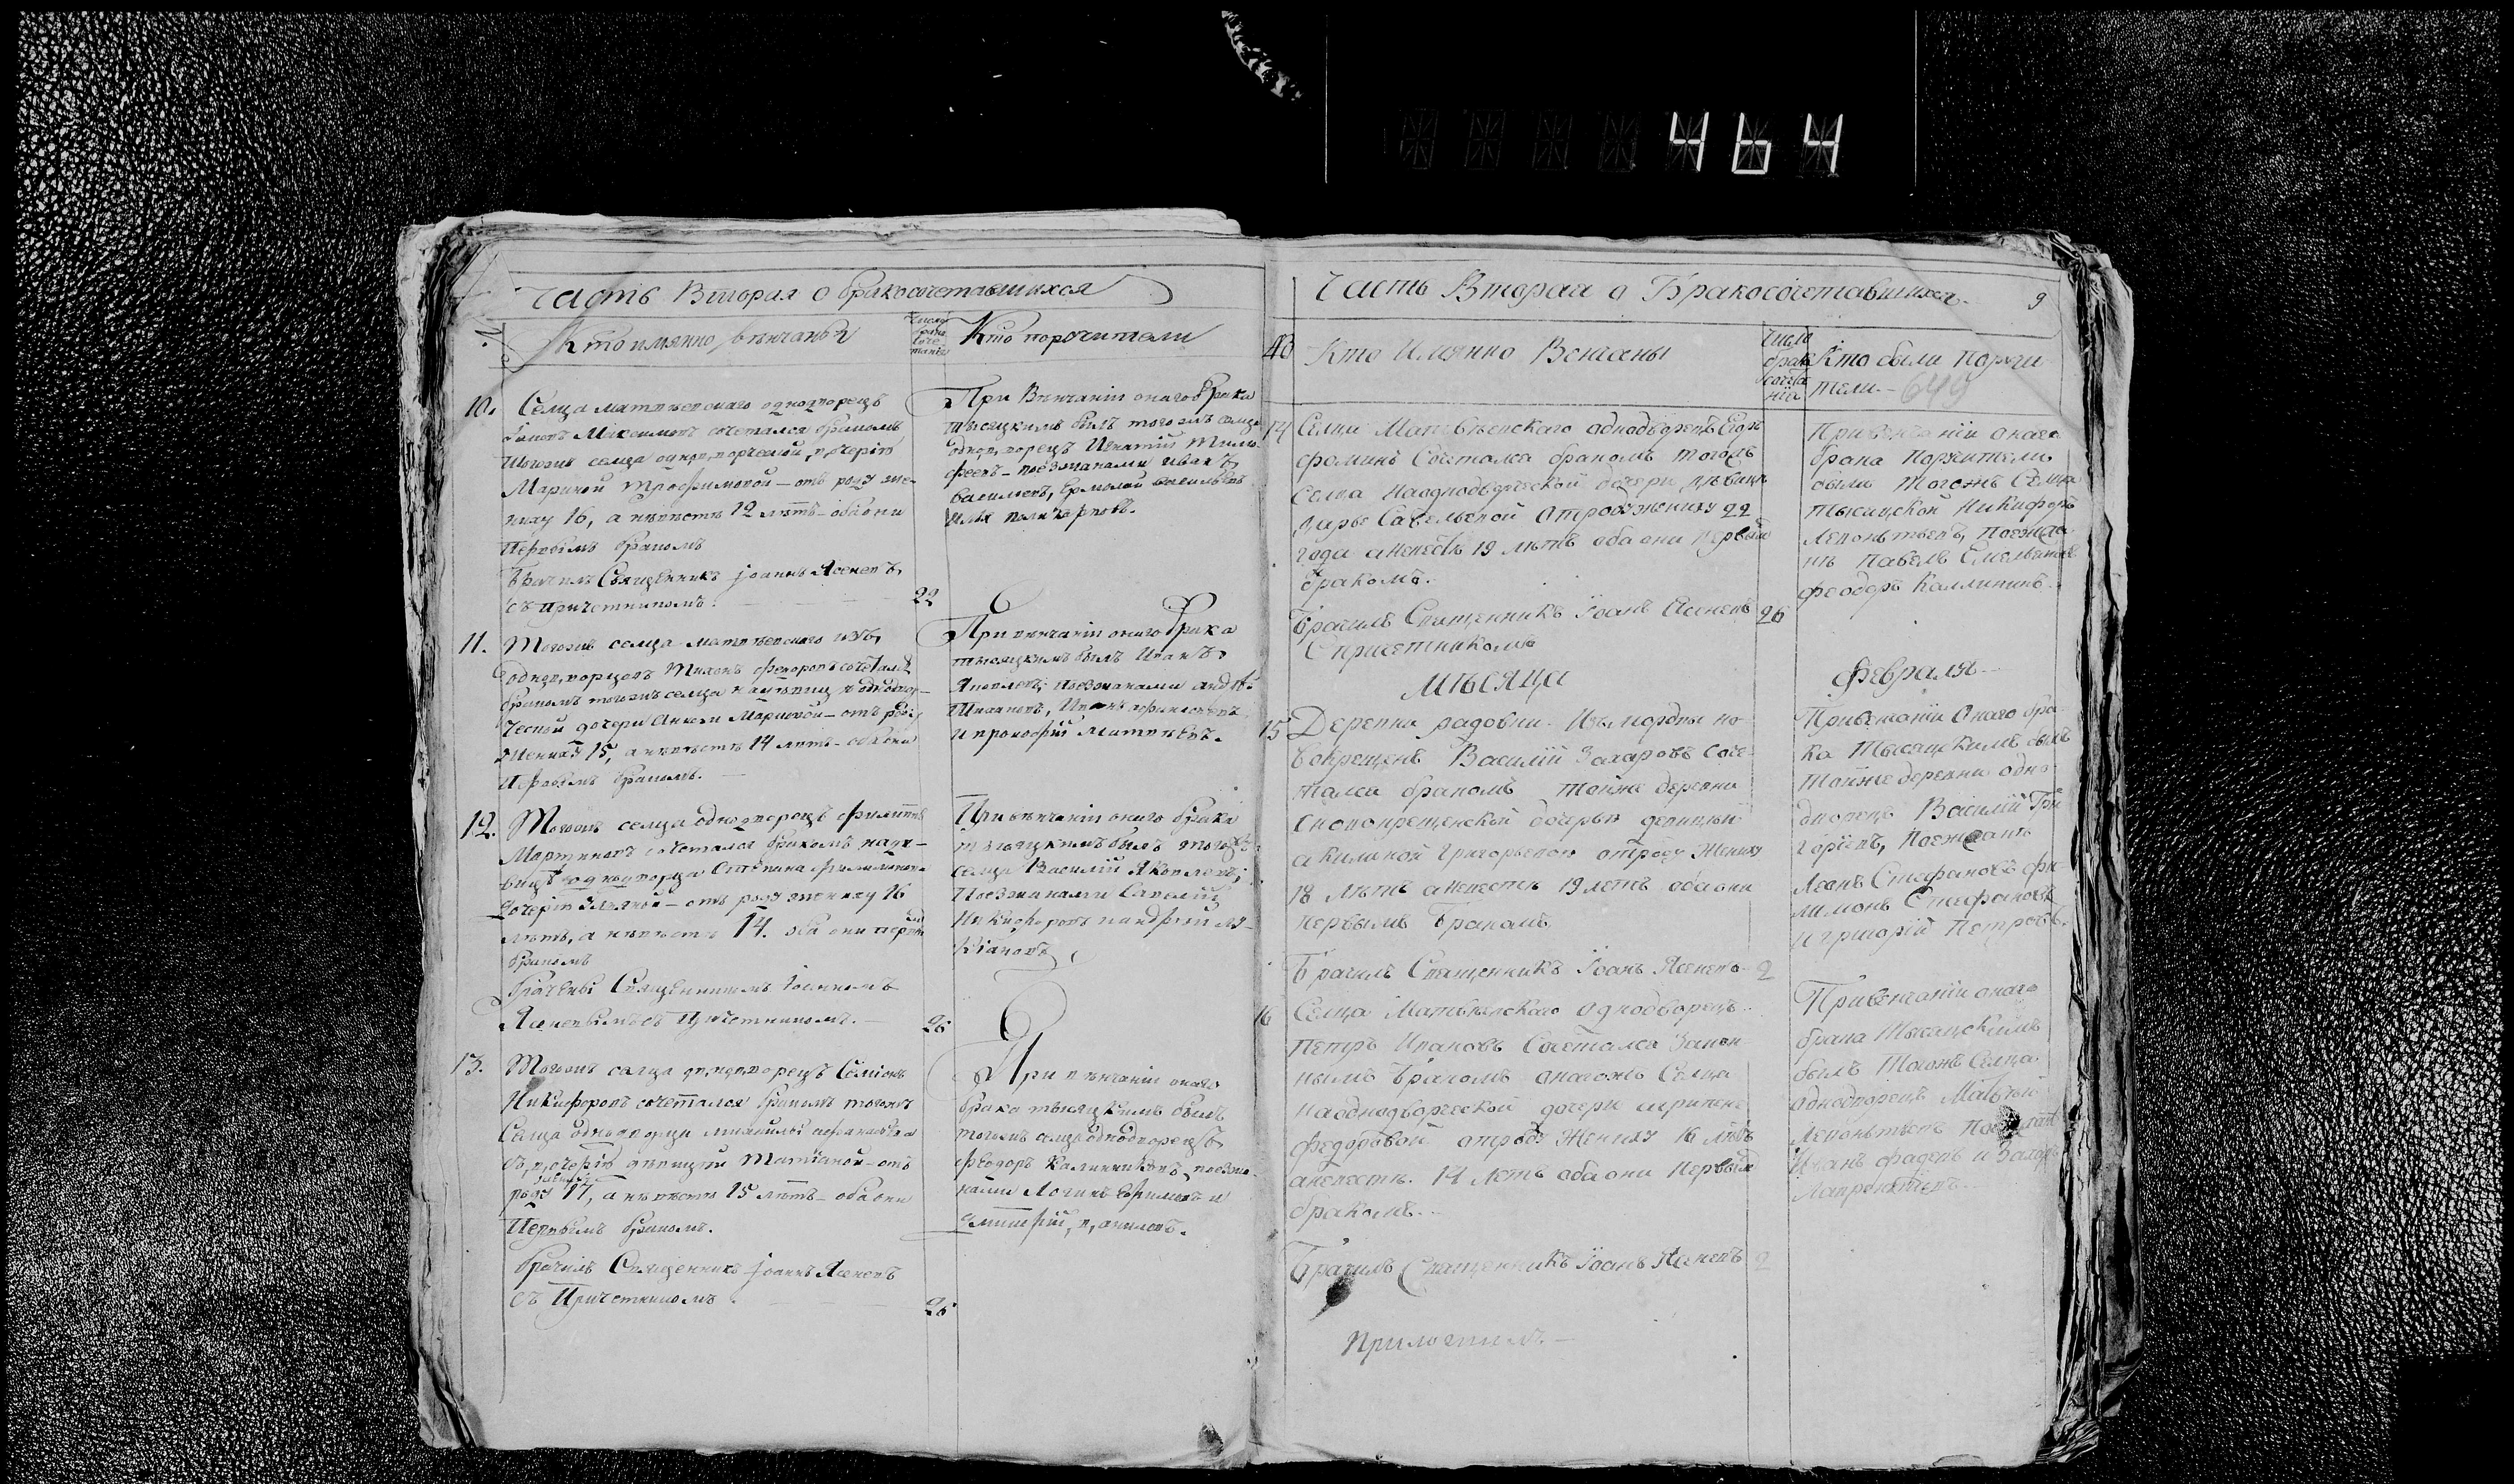 464
Часть Вторая о бракосочетавшихся
Кто имянно венчаны
Число брако сочетания
Кто поручители
10. Селца матвѣевскаго однодворецъ
Максимовъ сочетался бракомъ
тогожъ селца однодворческой дочерью
Мариной трофимовой – отъ роду же-
ниху 16, а невѣстѣ 19 лѣтъ – оба они
первымъ бракомъ
Брачилъ Священникъ Іоаннъ Ясеневъ
съ причетникомъ. 22
При Венчаніи онаго брака
тысяцкимъ былъ тогожъ селца
однодворецъ Игнатій Тимо
феевъ – поезжанами иванъ
васильевъ, Ермолай васильевъ
Илья поликарповъ.
11. Тогожъ селца матвѣевскаго изъ
однодворцовъ Тихонъ федоровъ сочетался
бракомъ тогожъ селца однодвор-
ческой дочери – отъ роду
жениху 15, а невѣстѣ 14 лѣтъ – оба они
первымъ бракомъ.
При венчаніи онаго брака
тысяцкимъ былъ Иванъ
Яковлевъ; поезжанами андрей
Ивановъ, Иванъ
и прокофій матвѣевъ.
12. Тогожъ селца однодворецъ филиппъ
Мартиновъ сочетался бракомъ на дѣ-
вицѣ однодворца
дочерью Ульяной – отъ роду жениху 16
лѣтъ, а невѣстѣ 14. оба они первымъ
бракомъ
брачены Священникомъ Іоанномъ
Ясеневымъ съ Причетникомъ. – 26
При венчаніи онаго брака
тысяцкимъ былъ тогожъ
селца Василій Яковлевъ;
Поезжанами Савелій
Никифоровъ и андрей лу-
кіановъ
13. Тогожъ селца однодворецъ Семіонъ
Никифоровъ сочетался бракомъ тогожъ
Селца однодворца
дочерью девицей Татіаной – отъ
роду жениху 17, а невѣстѣ 15 лѣтъ – оба они
Первымъ бракомъ.
брачилъ Священникъ Іоаннъ Ясеневъ
съ Причетникомъ. 26
При венчаніи онаго
брака тысяцкимъ былъ
тогожъ селца однодворецъ
феодоръ Калинниковъ, поезжа-
нами Логинъ Ефимовъ и
дмитрій даниловъ.
Часть Вторая о Бракосочетавшихся. 9
Кто Имянно Венчаны
Число брако сочета нія
Кто были Поручи
тели. – 649
14 Селца Матвѣевскаго однодворецъ Егоръ
фоминъ Сочетался бракомъ тогожъ
Селца наоднодворческой дочери дѣвицѣ
дарье Савельевой Отроду жениху 22
года а невестѣ 19 лѣтъ оба они первый
бракомъ.
Брачилъ Священникъ Іоанъ Ясеневъ 26
Спричетникомъ
При венчаніи онаго
брака Поручители
были Тогожъ Селца
тысяцкой Никифоръ
Леонтьевъ, поежжа-
нѣ Павелъ Емельяновъ
феодоръ Калининъ.
МѢСЯЦА
февраля –
15 Деревни радовки Измордвы но
вокрещенъ Василій Захаровъ Соче-
тался бракомъ тойже деревни
Сновокрещенской дочерью девицей
акилиной Григорьевой отроду Жениху
18 лѣтъ а невестѣ 19 летъ оба они
первымъ бракомъ.
Брачилъ Священникъ Іоанъ Ясеневъ 2
Привенчаніи Онаго бра
ка Тысяцкимъ былъ
Тойже деревни одно
дворецъ Василій Гри
горіевъ, Поежжанѣ
Стефановъ фи
лимонъ Стефановъ
и григорій Петровъ.
16 Селца Матвѣевскаго Однодворецъ
Петръ Ивановъ Сочетался Закон
нымъ Бракомъ онагожъ Селца
наоднодворческой дочери
федоровой отроду Жениху 16 лѣтъ
аневестѣ. 14 летъ оба они первый
бракомъ.
Брачилъ Священникъ Іоанъ Ясеневъ 2
Привенчаніи онаго
брака Тысяцкимъ
былъ Тогожъ Селца
однодворецъ Матвѣй
Леонтьевъ
Иванъ фадеевъ и